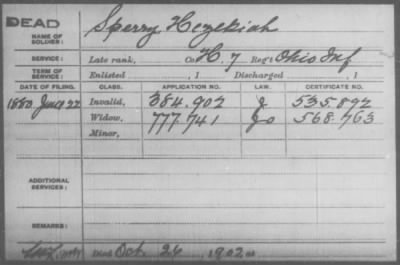 DEAD
NAME OF SOLDIER: Sperry, Hezekiah
SERVICE: Late rank, Co. H. 7 Reg't Ohio Inf
TERM OF SERVICE: Enlisted , 1 Discharged , 1
DATE OF FILING. CLASS. APPLICATION NO. LAW. CERTIFICATE NO.
1880 June 22 Invalid, 384.902 535.892
Widow, 777.741 568.763
Minor,
ADDITIONAL SERVICES:
REMARKS:
Died Oct. 24, 1902